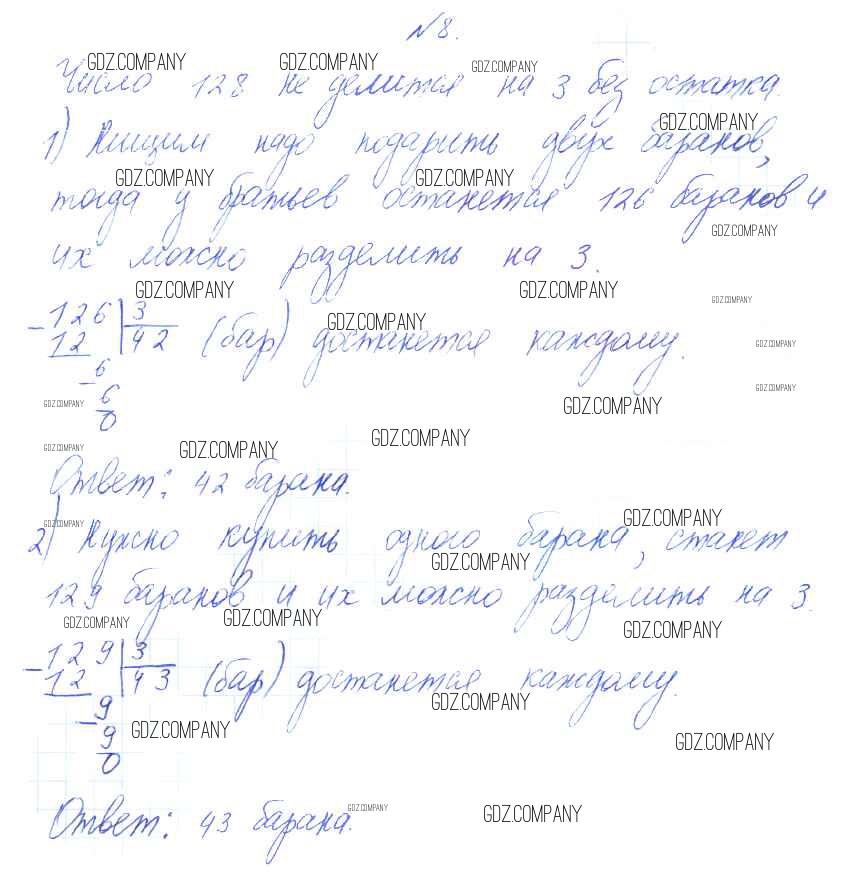 №8.
GDZ.COMPANY GDZ.COMPANY GDZ.COMPANY
Число 128 не делится на 3 без остатка.
GDZ.COMPANY
1) Нищим надо подарить двух баранов,
GDZ.COMPANY GDZ.COMPANY
тогда у братьев останется 126 баранов и
GDZ.COMPANY
их можно разделить на 3.
GDZ.COMPANY GDZ.COMPANY GDZ.COMPANY
GDZ.COMPANY
- 126 | 3
12 42 (бар) достанется каждому.
GDZ.COMPANY
- 6
GDZ.COMPANY
6
GDZ.COMPANY GDZ.COMPANY
0
GDZ.COMPANY GDZ.COMPANY GDZ.COMPANY
Ответ: 42 барана.
GDZ.COMPANY GDZ.COMPANY
2) Нужно купить одного барана, станет
GDZ.COMPANY
129 баранов и их можно разделить на 3.
GDZ.COMPANY GDZ.COMPANY GDZ.COMPANY
- 129 | 3
12 43 (бар) достанется каждому.
GDZ.COMPANY
- 9
GDZ.COMPANY
9
GDZ.COMPANY
0
GDZ.COMPANY GDZ.COMPANY
Ответ: 43 барана.